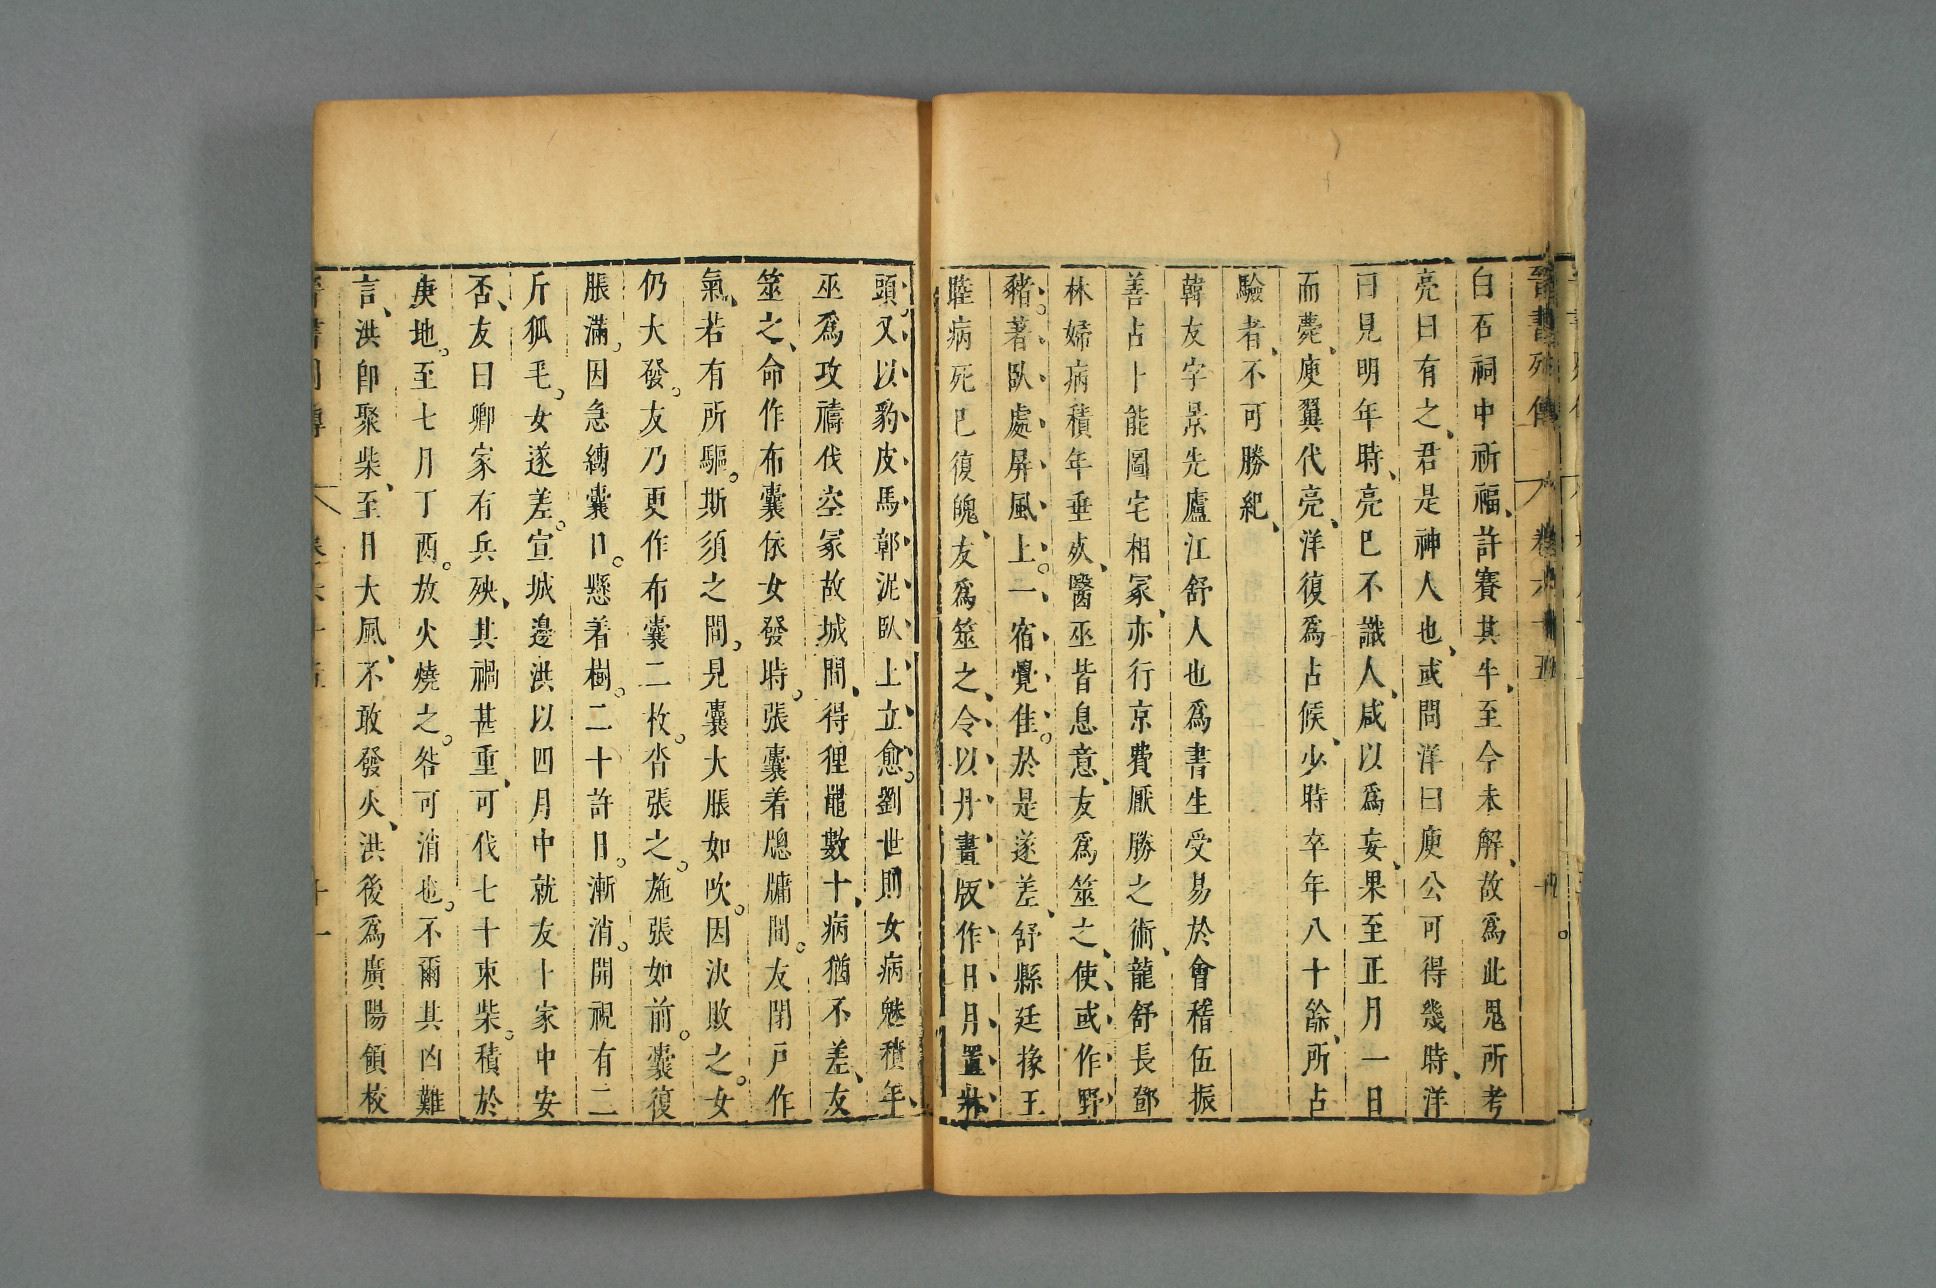 晉書列傳 卷六十五
白石祠中祈福、許賽其牛、至今未解、故爲此鬼所考
亮曰有之、君是神人也、或問洋曰庾公可得幾時、洋
曰見明年時、亮已不識人、咸以爲妄、果至正月一日
而薨、庾翼代亮、洋復爲占候、少時卒年八十餘、所占
驗者、不可勝紀、
韓友字景先廬江舒人也爲書生受易於會稽伍振
善占卜能圖宅相冢、亦行京費厭勝之術、龍舒長鄧
林婦病積年垂死、醫巫皆息意、友爲筮之、使或作野
豬。著臥處屏風上。一宿覺佳。於是遂差、舒縣廷掾王
睦病死已復魄、友爲筮之、令以丹畫版作日月置牀
頭。又以豹皮馬鄣泥臥上立愈。劉世則女病魅積年、
巫爲攻禱伐空冢故城間、得狸鼉數十、病猶不差、友
筮之、命作布囊依女發時。張囊着牕牖間。友閉戶作
氣、若有所驅。斯須之間、見囊大脹如吹。因決敗之。女
仍大發。友乃更作布囊二枚。沓張之。施張如前。囊復
脹滿。因急縛囊口。懸着樹。二十許日。漸消。開視有二
斤狐毛。女遂差。宣城邊洪以四月中就友卜家中安
否、友曰卿家有兵殃、其禍甚重、可伐七十束柴。積於
庚地。至七月丁酉。放火燒之。咎可消也。不爾其凶難
言、洪卽聚柴、至日大風、不敢發火、洪後爲廣陽領校